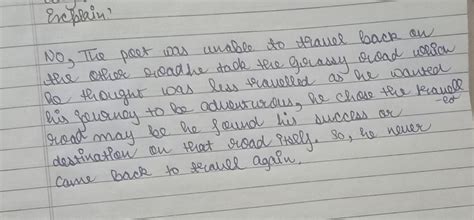 Explain?
No, The poet was unable to travel back on
the other road he took the grassy road which
he thought was less travelled as he wanted
his journey to be adventurous, he chose the travell
-ed
road may be he found his success or
destination on that road itself. So, he never
came back to travel again.